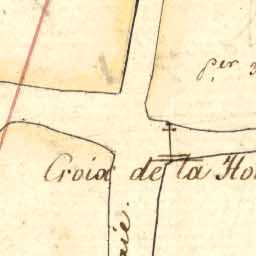 per
Croix de la Ho
aie.